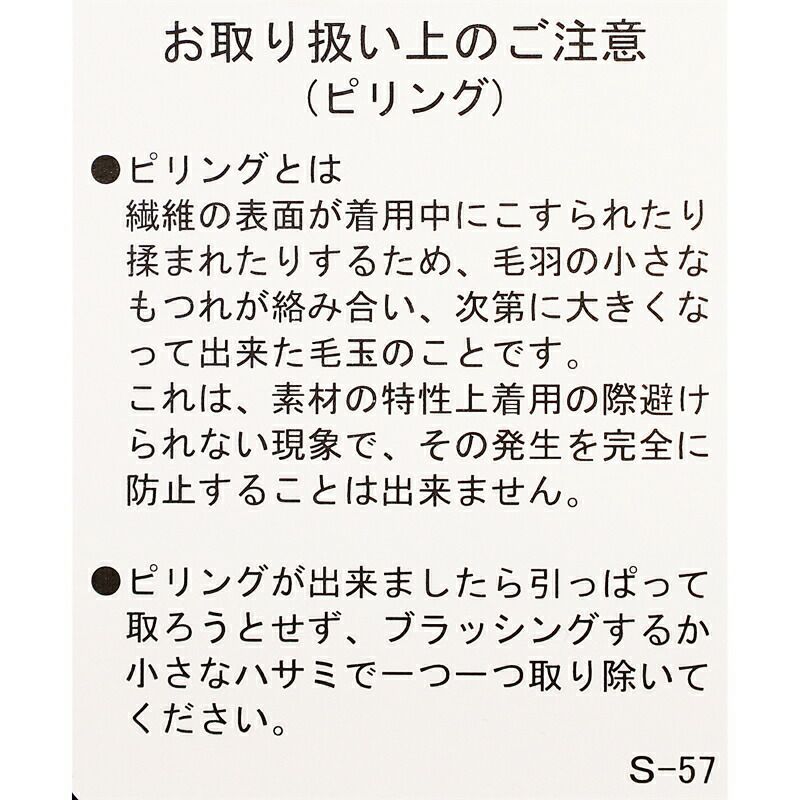 お取り扱い上のご注意
（ピリング）
●ピリングとは
繊維の表面が着用中にこすられたり
揉まれたりするため、毛羽の小さな
もつれが絡み合い、次第に大きくな
って出来た毛玉のことです。
これは、素材の特性上着用の際避け
られない現象で、その発生を完全に
防止することは出来ません。
●ピリングが出来ましたら引っぱって
取ろうとせず、ブラッシングするか
小さなハサミで一つ一つ取り除いて
ください。
S-57